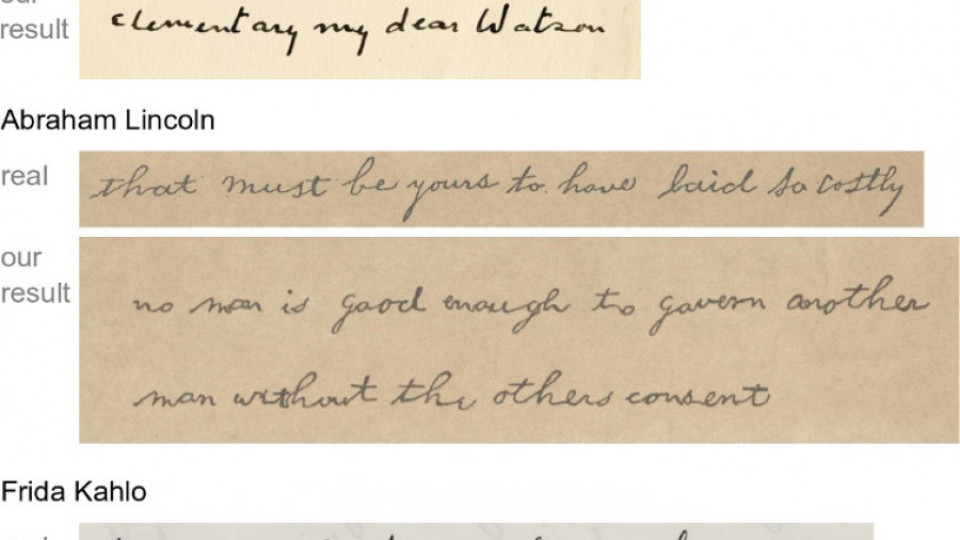 our
result
elementary my dear Watson
Abraham Lincoln
real
that must be yours to have laid so costly
our
result
no man is good enough to govern another
man without the others consent
Frida Kahlo